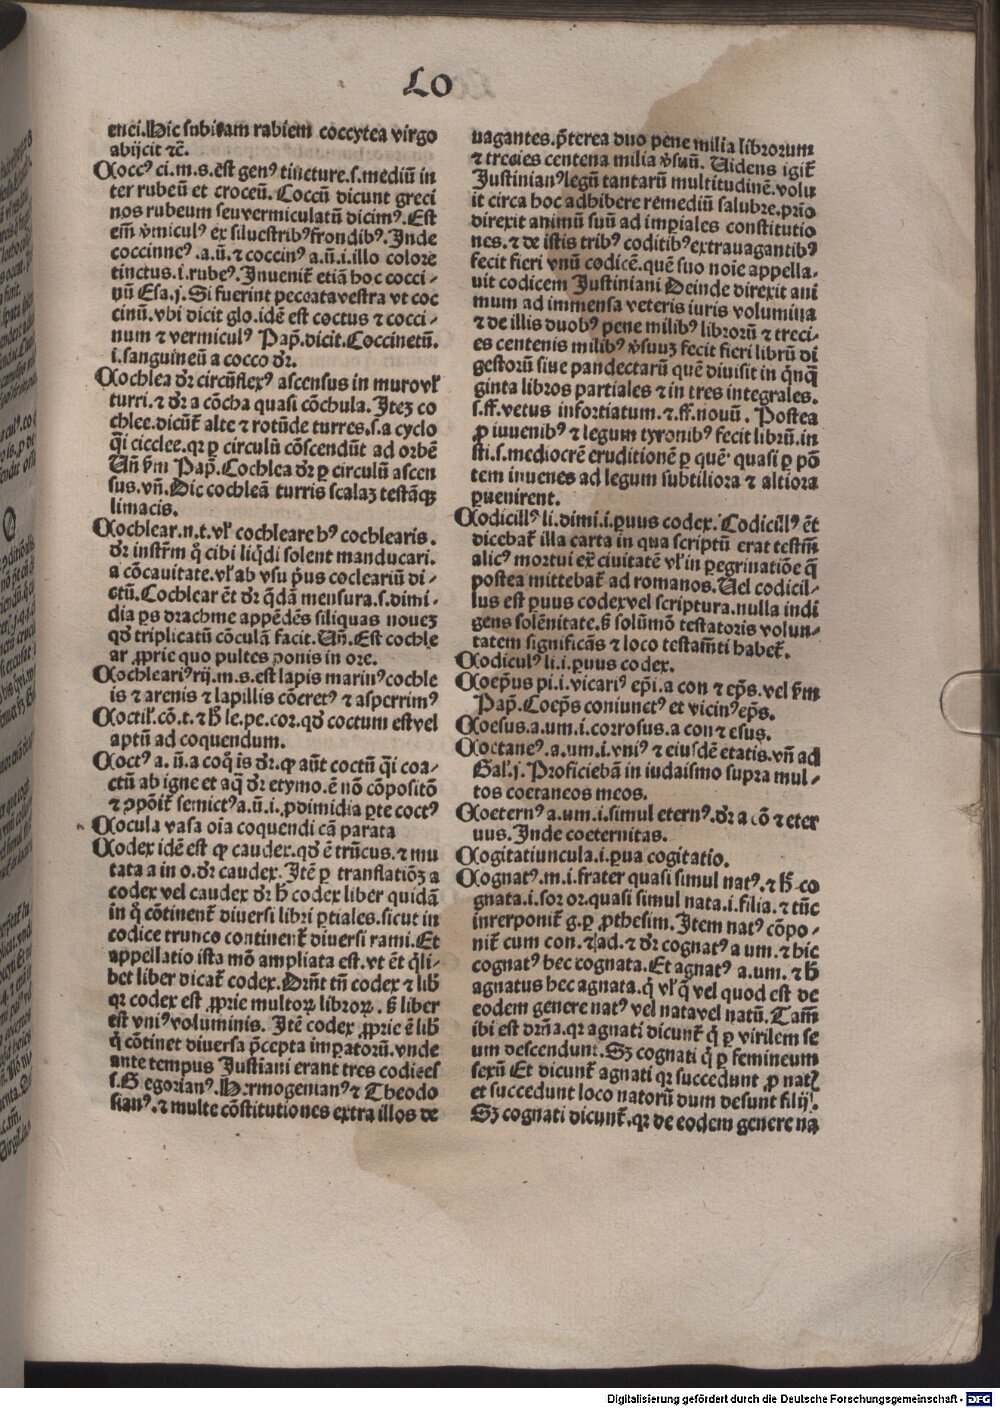 CO
enei.Hic subitam rabiem coccytea virgo
abijcit ⁊c̄.
Cocc⁹ ci.m.s.ēst gen⁹ tincture.s.mediū in
ter rubeū et croceū. Coccū dicunt greci
nos rubeum seu vermiculatū dicim⁹. Est
em̄ v̄micul⁹ ex siluestrib⁹ frondib⁹. Inde
coccinne⁹.a.ū.⁊ coccin⁹ a.ū.i.illo colore
tinctus.i.rube⁹. Inuenit̄ etiā hoc cocci-
nū Esa.j. Si fuerint peccata vestra vt coc
cinū.vbi dicit glo.idē est coctus ⁊ cocci-
num ⁊ vermicul⁹ Pap̄.dicit.Coccinetū.
i.sanguineū a cocco dr̄.
Cochlea dr̄ circūflex⁹ ascensus in muro vl̄
turri.⁊ dr̄ a cōcha quasi cōchula. Itez co
chlee.dicūt̄ alte ⁊ rotūde turres.s.a cyclo
q̄i cicclee.qꝛ ꝑ circulū cōscendūt ad orbē
Vn̄ v̄m Pap̄.Cochlea dr̄ ꝑ circulū ascen
sus.vn̄.Hic cochleā turris scalaꝫ testāqꝫ
limacis.
Cochlear.n.t.vl̄ cochleare h⁹ cochlearis.
dr̄ instr̄m q̊ cibi liq̄di solent manducari.
a cōcauitate.vl̄ ab vsu p̄us cocleariū di-
ctū.Cochlear ēt dr̄ q̄dā mensura.s.dimi-
dia ꝑs drachme appēdēs siliquas nouez
qd̄ triplicatū cōculā facit.Vn̄.Est cochle
ar ꝓprie quo pultes ponis in ore.
Cochleari⁹ rij.m.s.est lapis marin⁹ cochle
is ⁊ arenis ⁊ lapillis cōcret⁹ ⁊ asperrim⁹
Coctil̄.cō.t.⁊ h̄ le.pe.cor.qd̄ coctum est vel
aptū ad coquendum.
Coct⁹ a.ū.a coq̊ is dr̄.qꝫ aūt coctū q̄i coa-
ctū ab igne et aq̄ dr̄ etymo.ē nō cōpositō
⁊ ꝯpōit̄ semict⁹ a.ū.i.ꝓ dimidia ꝑte coct⁹
Cocula vasa oīa coquendi cā parata
Codex idē est qꝫ caudex.qd̄ ē trūcus.⁊ mu
tata a in o.dr̄ caudex. Itē ꝑ translatiōꝫ a
codex vel caudex dr̄ h̄ codex liber quidā
in q̊ cōtinent̄ diuersi libri ꝑtiales.sicut in
codice trunco continent̄ diuersi rami.Et
appellatio ista mō ampliata est.vt ēt q̄li-
bet liber dicat̄ codex.Drn̄t tn̄ codex ⁊ lib̄
qꝛ codex est ꝓprie multoꝝ libroꝝ. ß liber
est vni⁹ voluminis. Itē codex ꝓprie ē lib̄
q̊ cōtinet diuersa p̄cepta imꝑatorū.vnde
ante tempus Justiani erant tres codices
s.Gregorian⁹.Hermogenian⁹ ⁊ Theodo
sian⁹.⁊ multe cōstitutiones extra illos de
uagantes.p̄terea duo pene milia librorum
⁊ trecies centena milia v̄suū. Uidens igit̄
Justinian⁹ legū tantarū multitudinē.volu
it circa hoc adhibere remediū salubre.prīo
direxit animū suū ad imꝑiales constitutio
nes.⁊ de istis trib⁹ codicib⁹ extrauagantib⁹
fecit fieri vnū codicē.quē suo noīe appella-
uit codicem Justiniani Deinde direxit ani
mum ad immensa veteris iuris volumina
⁊ de illis duob⁹ pene milib⁹ librorū ⁊ treci-
es centenis milib⁹ v̄suuꝫ fecit fieri librū di
gestorū siue pandectarū quē diuisit in q̄nq̄
ginta libros partiales ⁊ in tres integrales.
s.ff.vetus infortiatum.⁊.ff.nouū. Postea
ꝓ iuuenib⁹ ⁊ legum tyronib⁹ fecit librū.in
sti.s.mediocrē eruditionē ꝑ quē quasi ꝑ pō
tem iuuenes ad legum subtiliora ⁊ altiora
ꝑuenirent.
Codicill⁹ li.dimi.i.ꝑuus codex. Codicill⁹ ēt
dicebat̄ illa carta in qua scriptū erat testm̄
alic⁹ mortui ext̄ ciuitatē vl̄ in ꝑegrinatiōe q̄
postea mittebat̄ ad romanos.Uel codicil-
lus est ꝑuus codex vel scriptura.nulla indi
gens solēnitate.ß solūmō testatoris volun-
tatem significās ⁊ loco testam̄ti habet̄.
Codicul⁹ li.i.ꝑuus codex.
Coep̄us pi.i.vicari⁹ ep̄i.a con ⁊ ep̄s.vel v̄m
Pap̄.Coep̄s coniunct⁹ et vicin⁹ ep̄s.
Coesus.a.um.i.corrosus.a con ⁊ esus.
Coctane⁹.a.um.i.vni⁹ ⁊ eiusdē etatis.vn̄ ad
Gal̄.j. Proficiebā in iudaismo supra mul-
tos coetaneos meos.
Coetern⁹ a.um.i.simul etern⁹.dr̄ a cō ⁊ eter
nus. Inde coeternitas.
Cogitatiuncula.i.ꝑua cogitatio.
Cognat⁹.m.i.frater quasi simul nat⁹.⁊ h̄ co
gnata.i.soror.quasi simul nata.i.filia.⁊ tūc
interponit̄ g.ꝑ ꝓthesim. Item nat⁹ cōpo-
nit̄ cum con.⁊ ad.⁊ dr̄ cognat⁹ a um.⁊ hic
cognat⁹ hec cognata. Et agnat⁹ a.um.⁊ h̄
agnatus hec agnata.q̊ vl̄ q̄ vel quod est de
eodem genere nat⁹ vel nata vel natū. Tam̄
ibi est drn̄a.qꝛ agnati dicunt̄ q̊ ꝑ virilem se
xum descendunt. Sꝫ cognati q̊ ꝑ femineum
sexū Et dicunt̄ agnati qꝛ succedunt ꝓ nat⁹
et succedunt loco natorū dum desunt filij.
Sꝫ cognati dicunt̄.qꝛ de eodem genere na
Digitalisierung gefördert durch die Deutsche Forschungsgemeinschaft - DFG